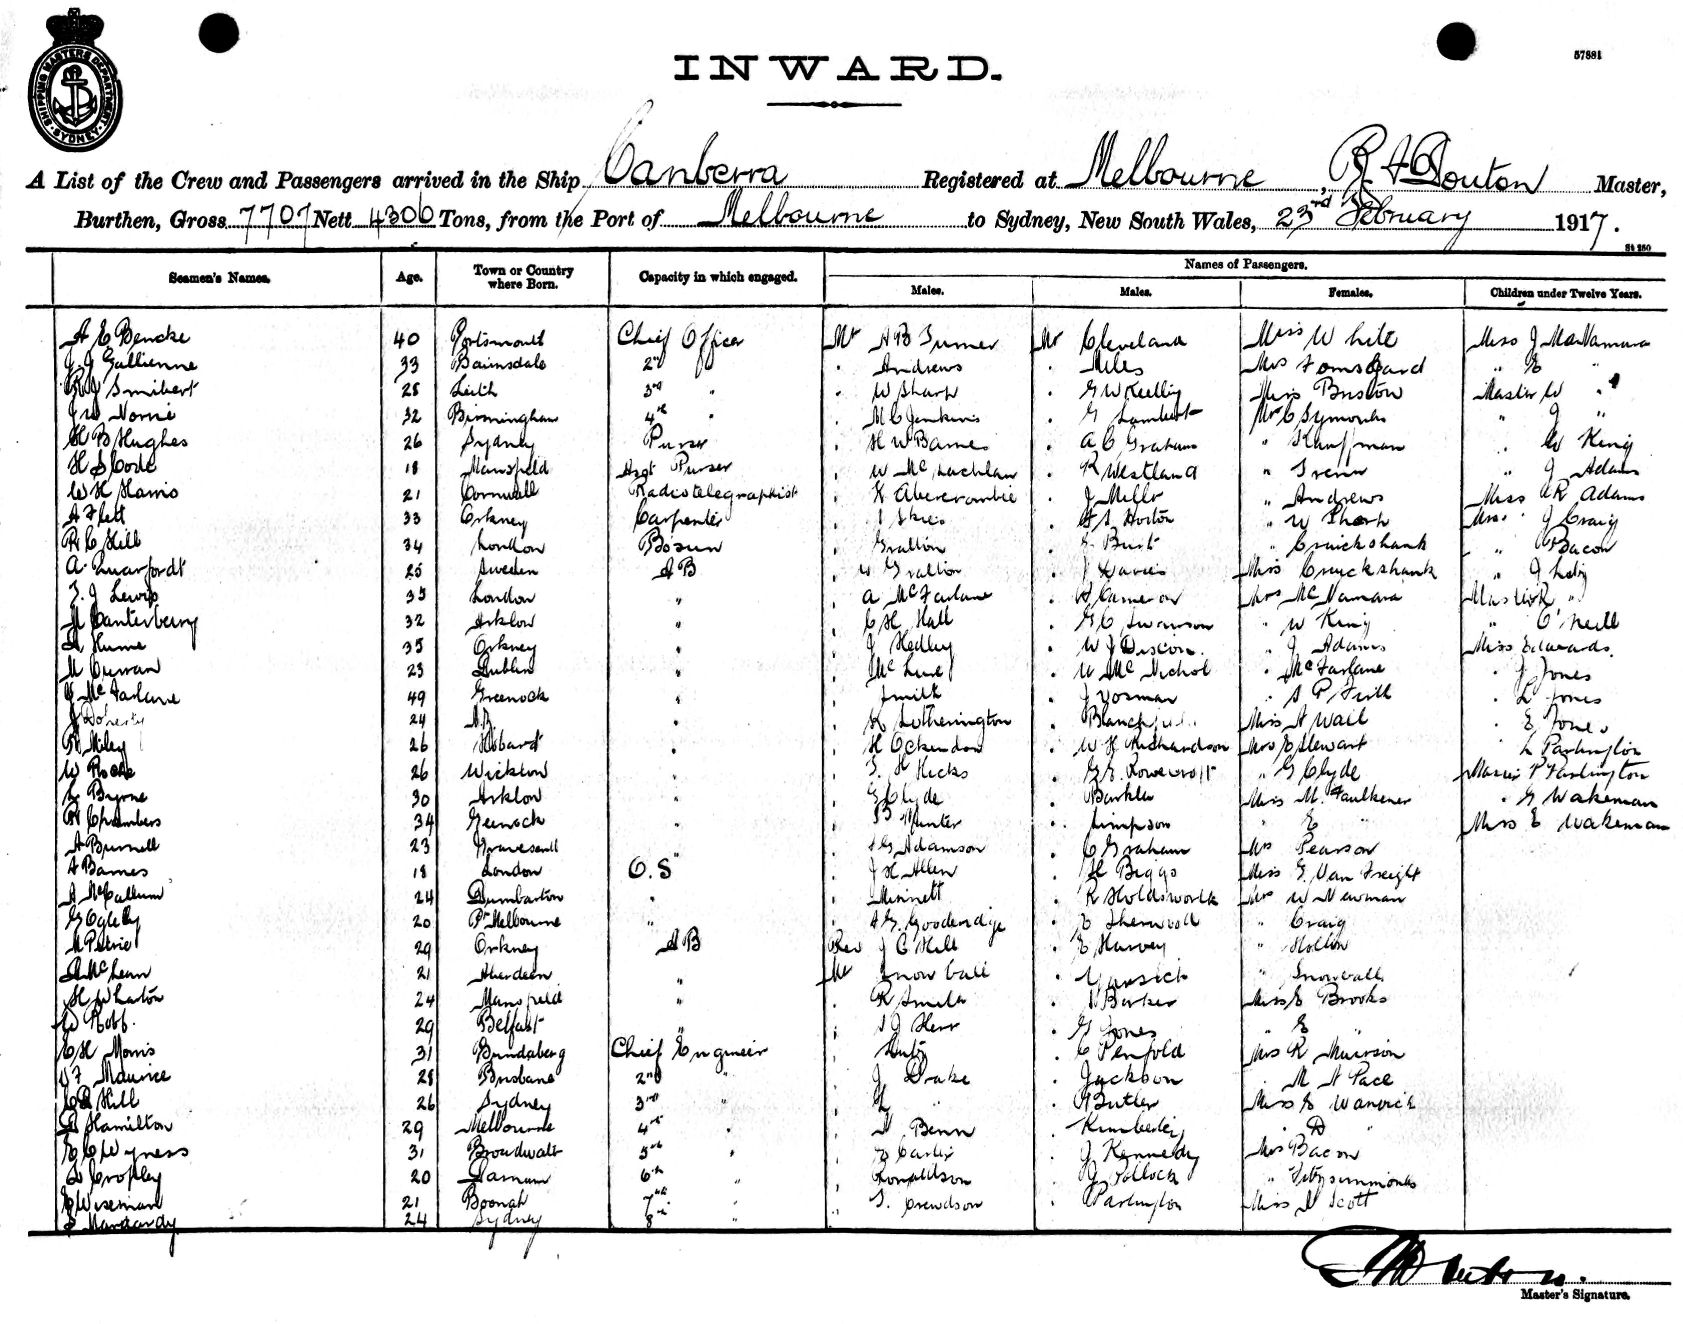 SHIPPING MASTERS DEPARTMENT SYDNEY
57881
INWARD.
A List of the Crew and Passengers arrived in the Ship Canberra Registered at Melbourne, Master,
Burthen, Gross 7707 Nett 4306 Tons, from the Port of Melbourne to Sydney, New South Wales, 23rd February 1917.
St 250
Seamen's Names. Age. Town or Country where Born. Capacity in which engaged. Names of Passengers.
Males. Males. Females. Children under Twelve Years.
A E Bencke 40 Portsmouth Chief Officer Mr A B Turner Mr Cleveland Miss White Miss J McNamara
J J Gallienne 33 Bairnsdale 2nd " Andrews " Miles Mrs " E "
R J Smibert 28 Leith 3rd " " W Sharp " G W Reilly Miss Bristow Master W "
J W Norrie 32 Birmingham 4th " " M C Jenkins " G Lambert Mrs C Symonds " J "
H B Hughes 26 Sydney Purser " H W Barnes " A C Graham " Kauffman " W King
H S Code 18 Mansfield Asst Purser " W McLachlan " R Westland " " J Adams
W H Harris 21 Cornwall Radiotelegraphist " K Abercrombie " J Mills " Andrews Miss R Adams
A Flett 33 Orkney Carpenter " " S Horton " W Sharp Miss J Craig
R C Hill 34 London Bosun " Gratton " Burt " Cruickshank " Bacon
A 25 Sweden AB " W Gratton " J Davies Miss Cruickshank " J
J Lewis 35 London " " A McFarlane " Cameron Mrs McNamara Master R "
M Canterbury 32 Arklow " " C H Hall " G C Swanson " W King " O'Neill
Hume 35 Orkney " " J Hedley " W J Discon. " J Adams Miss Edwards.
M Curran 23 Dublin " " " W McNichol " McFarlane " J Jones
McFarlane 49 Greenock " " Smith " J Vosman " S P Frith " L Jones
J Doherty 24 " " K Lotherington " Miss A Wail " E Jones
R Miley 26 Hobart " " H Ockendon " W H Richardson Mrs E Stewart " L Partington
W Roche 26 Wicklow " " H Hicks " Rowcroft " G Clyde Master P Partington
Byrne 30 Arklow " " G Clyde " Miss M. Faulkener " G Wakeman
R Chambers 34 Greenock " " Hunter " Simpson " E " Miss E Wakeman
A Burnell 23 Gravesend " " Adamson " C Graham Mrs Pearson
A Barnes 18 London O.S " J H Allen " H Biggs Miss E. Van Freight
A McCallum 24 Dumbarton " " Minnett " R Holdsworth Mrs W Newman
G Oglelby 20 Pt Melbourne " " A G. " E Sherwood " Craig
Petrie 29 Orkney AB Rev J C Hill " E Harvey " Hollin
A McLean 21 Aberdeen " Mr Snowball " " Snowball
H Wharton 24 Mansfield " " R " Barker Miss E Brooks
W Robb. 29 Belfast " " Herr " G Jones " E "
E H Morris 31 Bundaberg Chief Engineer " " C Penfold Mrs R Muirson
F Maurice 28 Brisbane 2nd " " J Drake " Jackson " M A Pace
Hill 26 Sydney 3rd " " " " Butler Miss E Warwick
Hamilton 29 Melbourne 4th " " Benn " Kimberley " D "
E C Wyness 31 Broadwater 5th " " " J Kennedy Mrs Bacon
Cropley 20 6th " " Ronaldson " J Pollock " Fitzsimmonds
E Wiseman 21 Boonah 7th " " S. Crewdson " Partington Miss Scott
24 Sydney 8th "
Master's Signature.